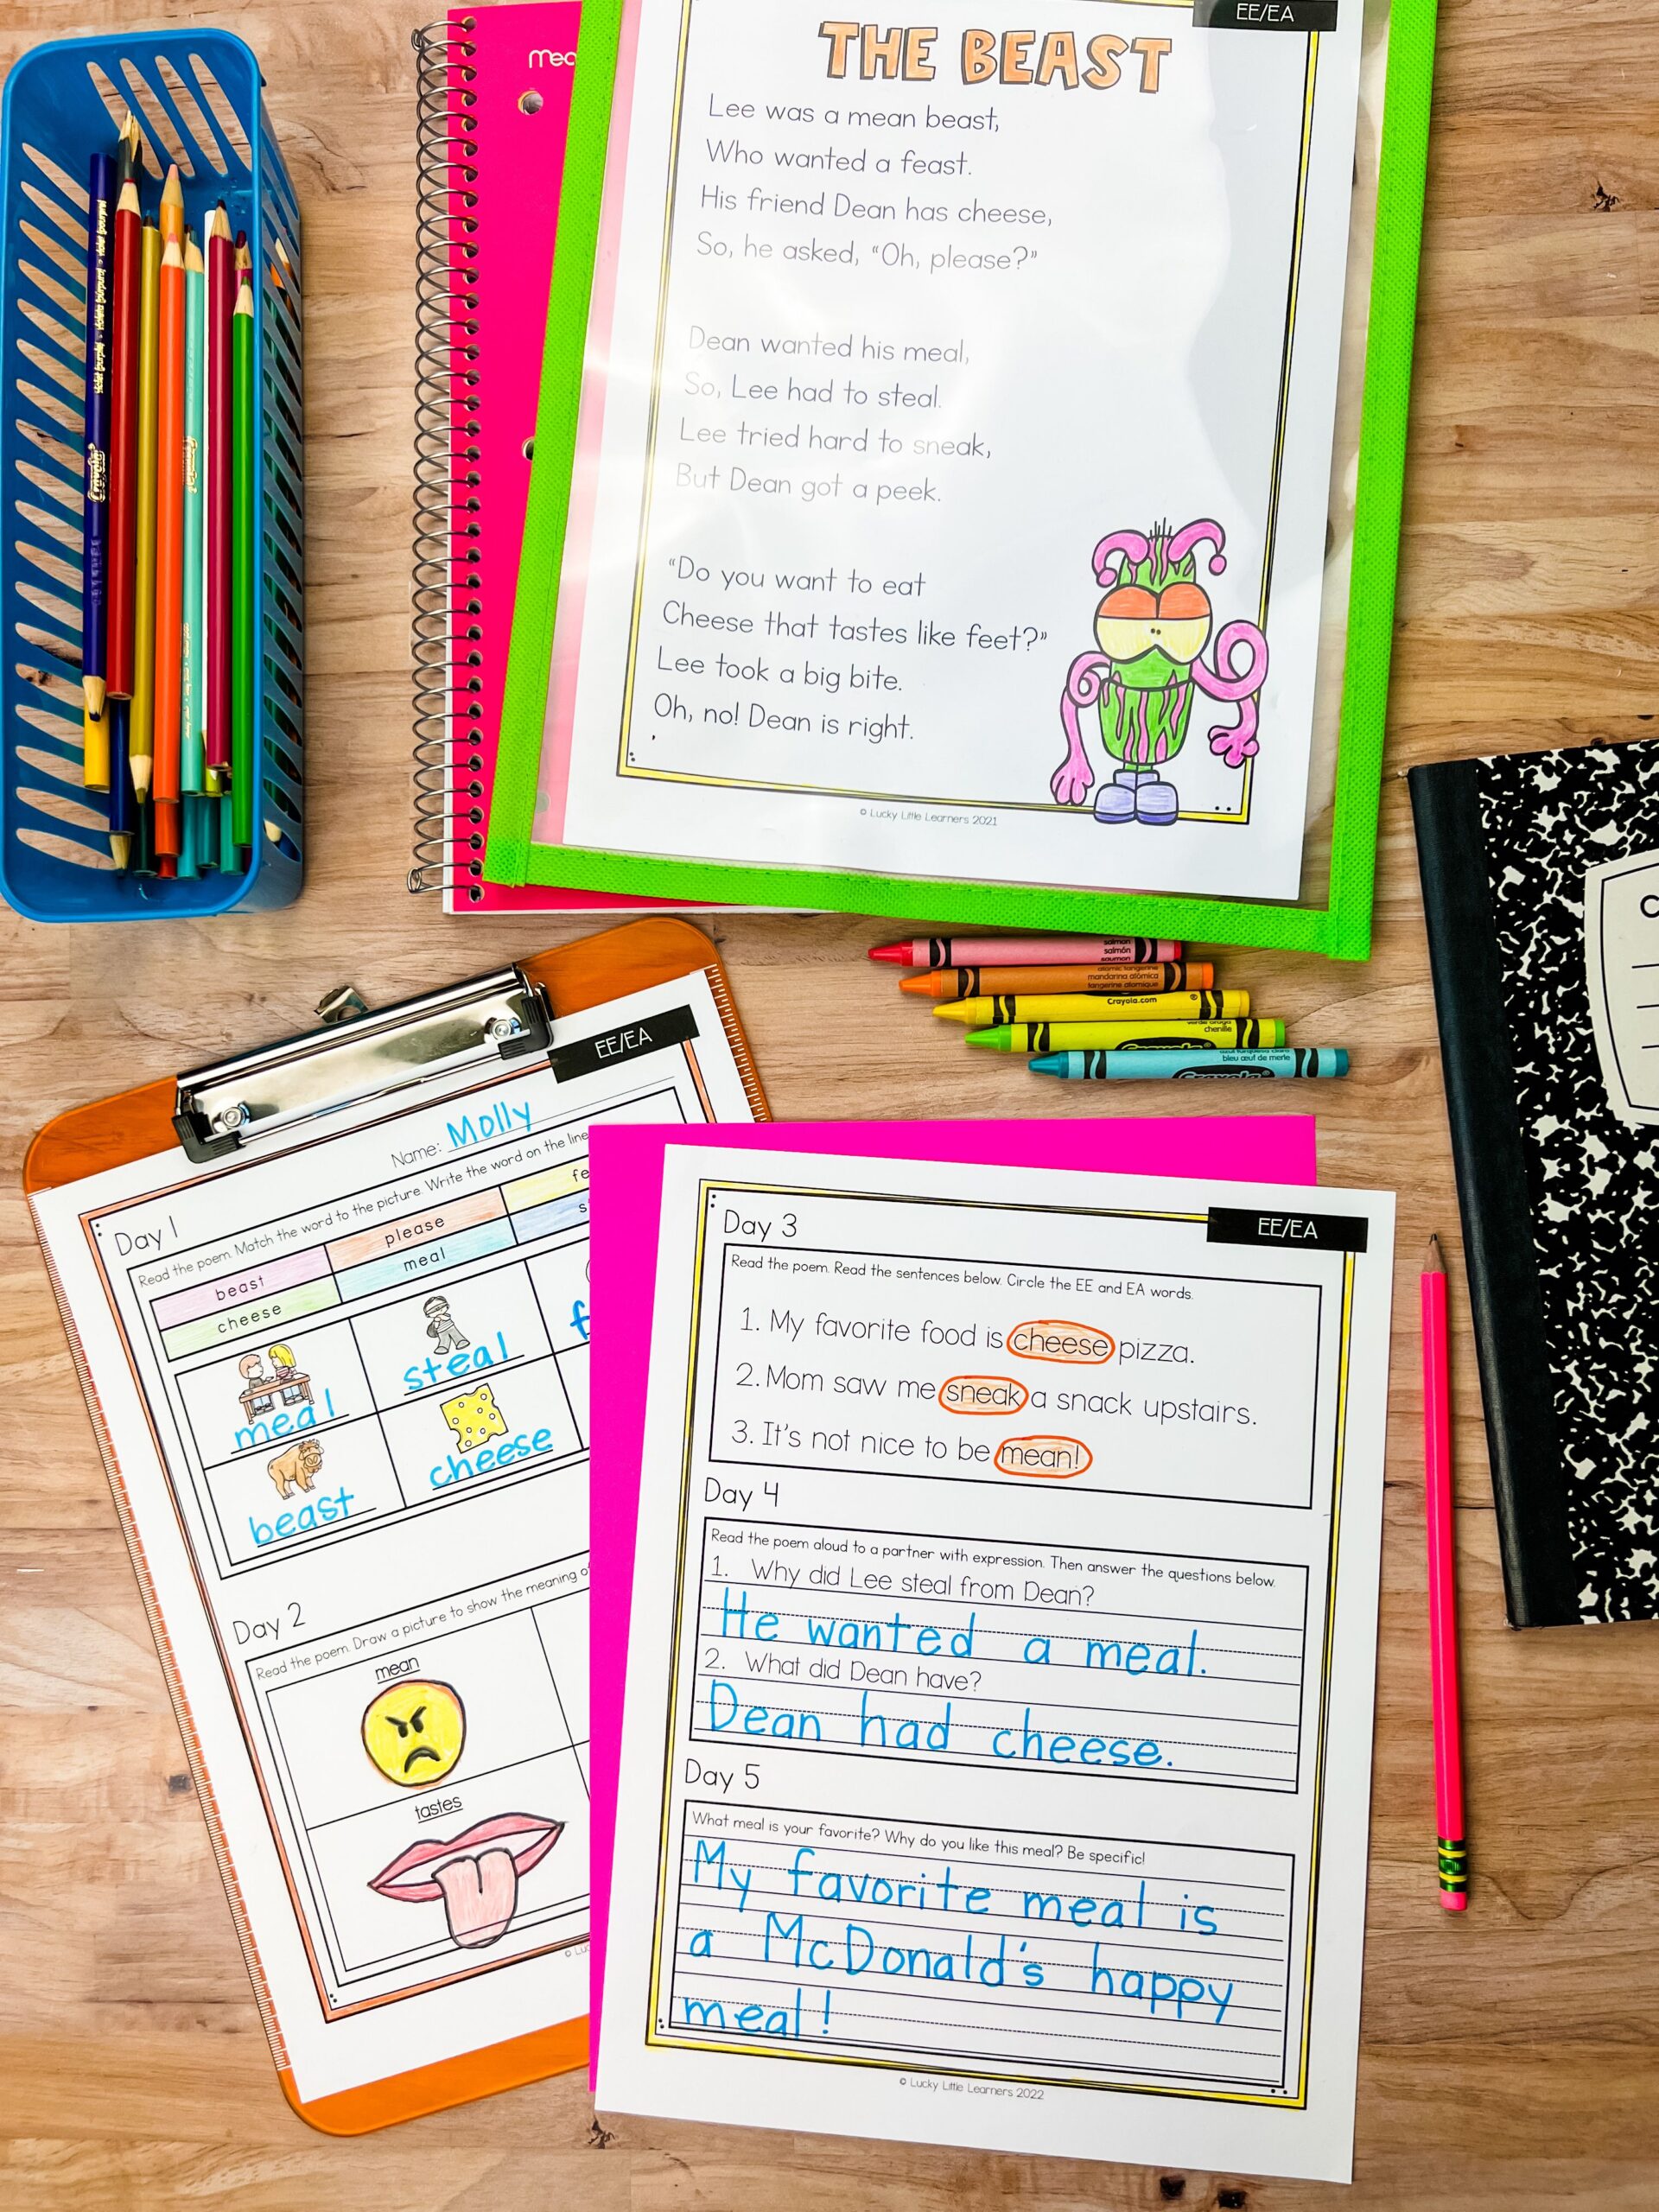 EE/EA
THE BEAST
Lee was a mean beast,
Who wanted a feast.
His friend Dean has cheese,
So, he asked, “Oh, please?”
Dean wanted his meal,
So, Lee had to steal.
Lee tried hard to sneak,
But Dean got a peek.
“Do you want to eat
Cheese that tastes like feet?”
Lee took a big bite.
Oh, no! Dean is right.
© Lucky Little Learners 2021
violet purple
Crayola
salmon
salmón
saumon
atomic tangerine
mandarina atómica
tangerine atomique
Crayola.com ®
chenille
Crayola
bleu œuf de merle
Crayola
EE/EA
Name: Molly
Day 1
Read the poem. Match the word to the picture. Write the word on the line
beast please
cheese meal
meal steal
beast cheese
Day 2
Read the poem. Draw a picture to show the meaning
mean
tastes
EE/EA
Day 3
Read the poem. Read the sentences below. Circle the EE and EA words.
1. My favorite food is cheese pizza.
2. Mom saw me sneak a snack upstairs.
3. It's not nice to be mean!
Day 4
Read the poem aloud to a partner with expression. Then answer the questions below.
1. Why did Lee steal from Dean?
He wanted a meal.
2. What did Dean have?
Dean had cheese.
Day 5
What meal is your favorite? Why do you like this meal? Be specific!
My favorite meal is
a McDonald's happy
meal!
© Lucky Little Learners 2022